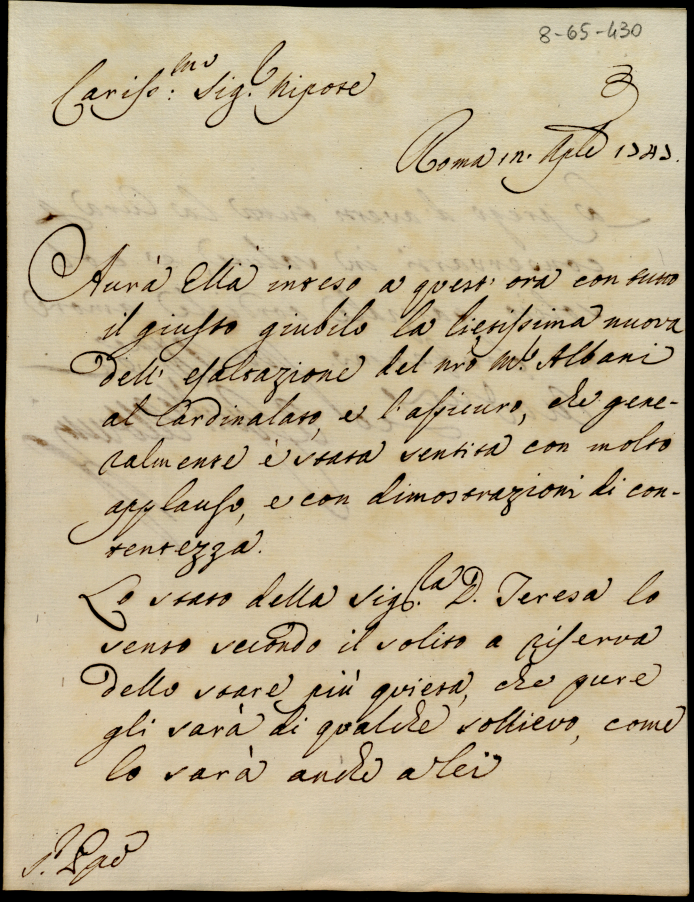 8-65-430
Cariss:mo Sig.r Nipote
Roma 12. Aple 1747.
Aurà Ella inteso a quest' ora con tutto
il giusto giubilo la lietissima nuova
dell' esaltazione del nrō Mr. Albani
al Cardinalato, e l'assicuro, che gene-
ralmente è stata sentita con molto
applauso, e con dimostrazioni di con-
tentezza.
Lo stato della Sig.ra D. Teresa lo
sento secondo il solito a riserva
dello stare più quieta, che pure
gli sarà di qualche sollievo, come
lo sarà anche a lei